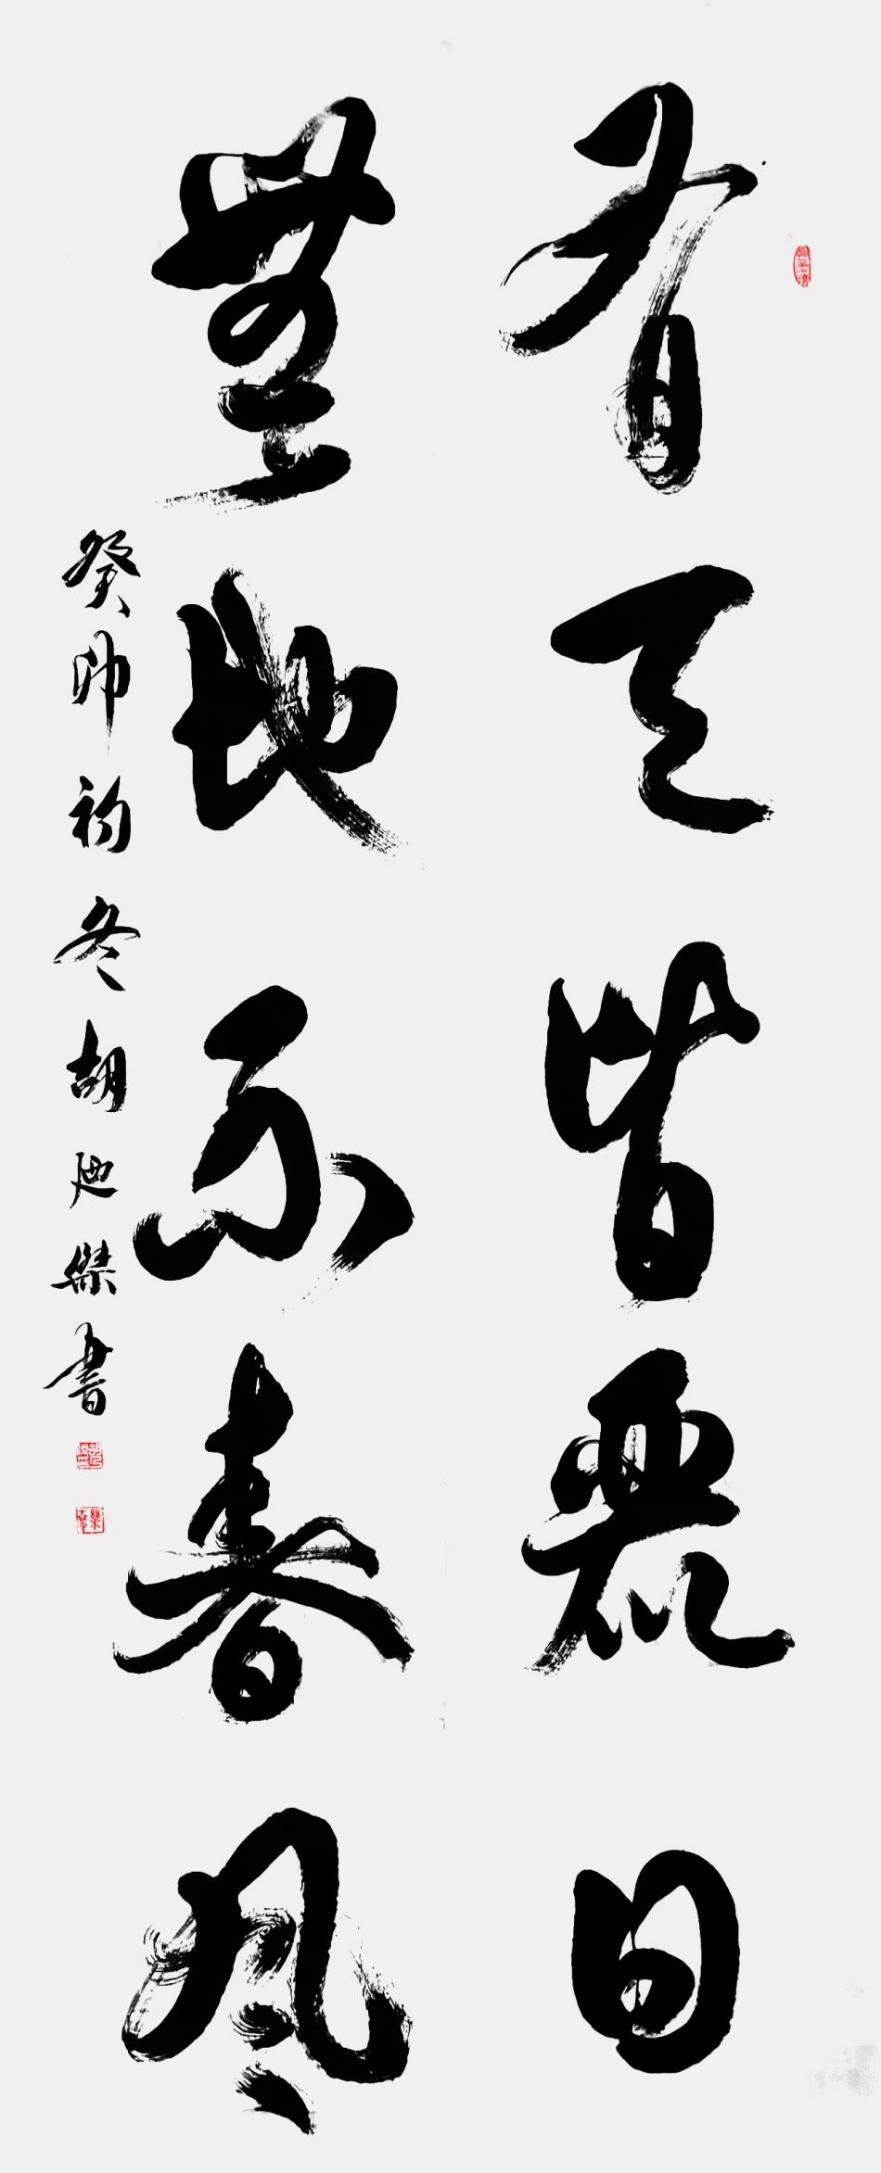 有天皆麗日
無地不春风
癸卯初冬胡廸傑書